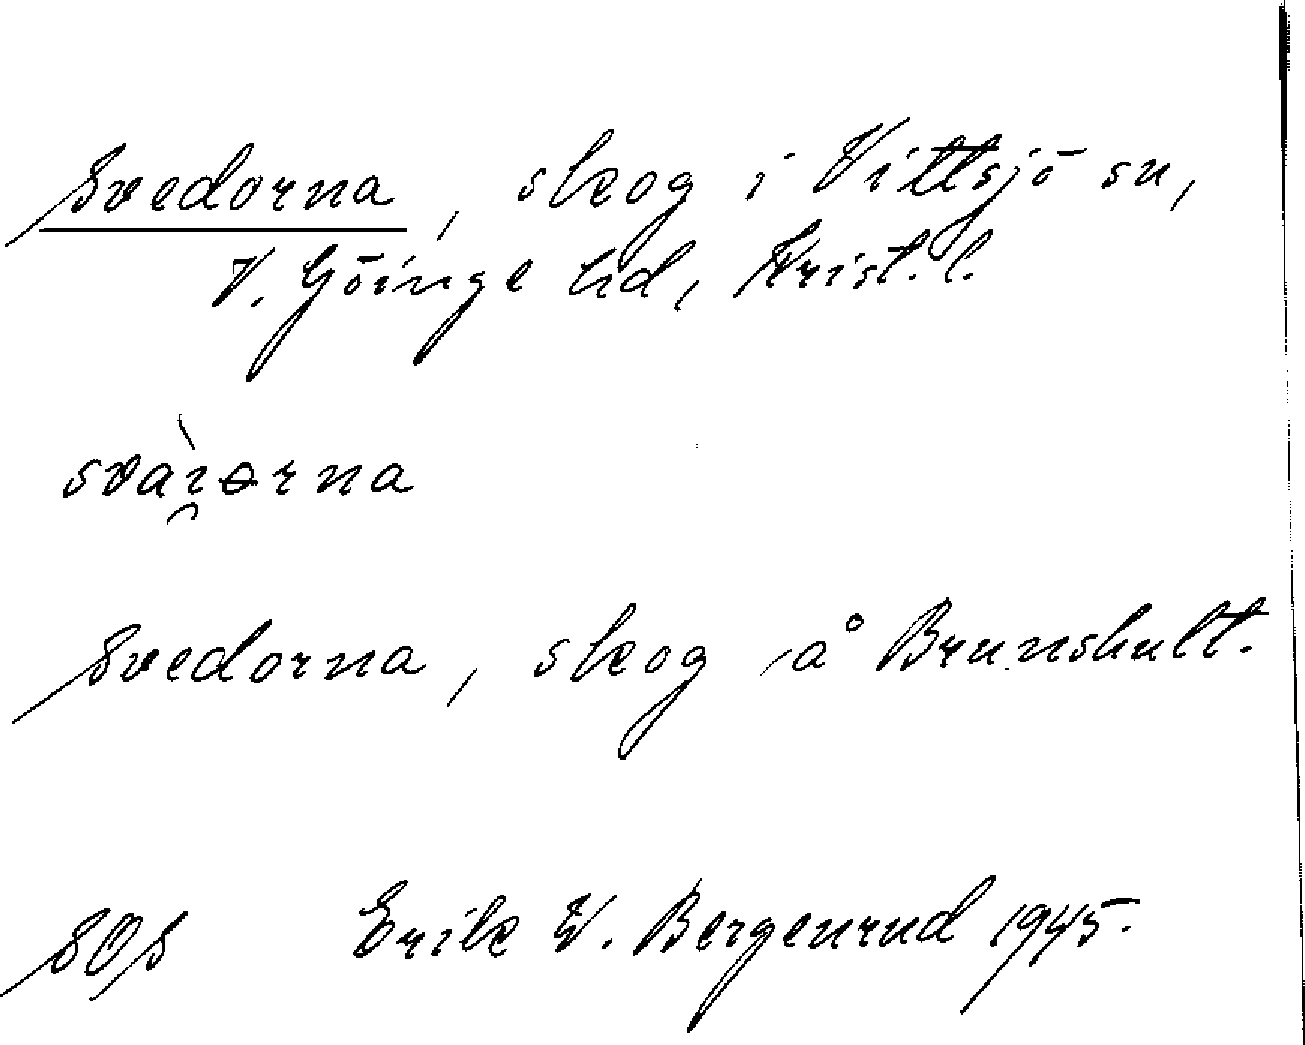 Svedorna, skog i Vittsjö sn,
V. Göinge hd, Krist. l.
svài̯ɵrna
Svedorna, skog å Brunshult.
SOS Erik W. Bergenrud 1945.